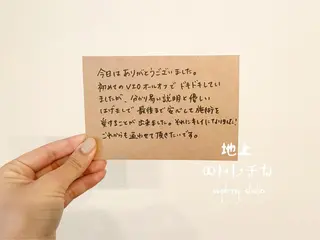 今日はありがとうございました。
初めてのVIOオールオフでドキドキしてい
ましたが、分かり易い説明と優しい
はげましで最後まで安心して施術を
受けることが出来ました。それにキレイになりました!
これからも通わせて頂きたいです。
地上